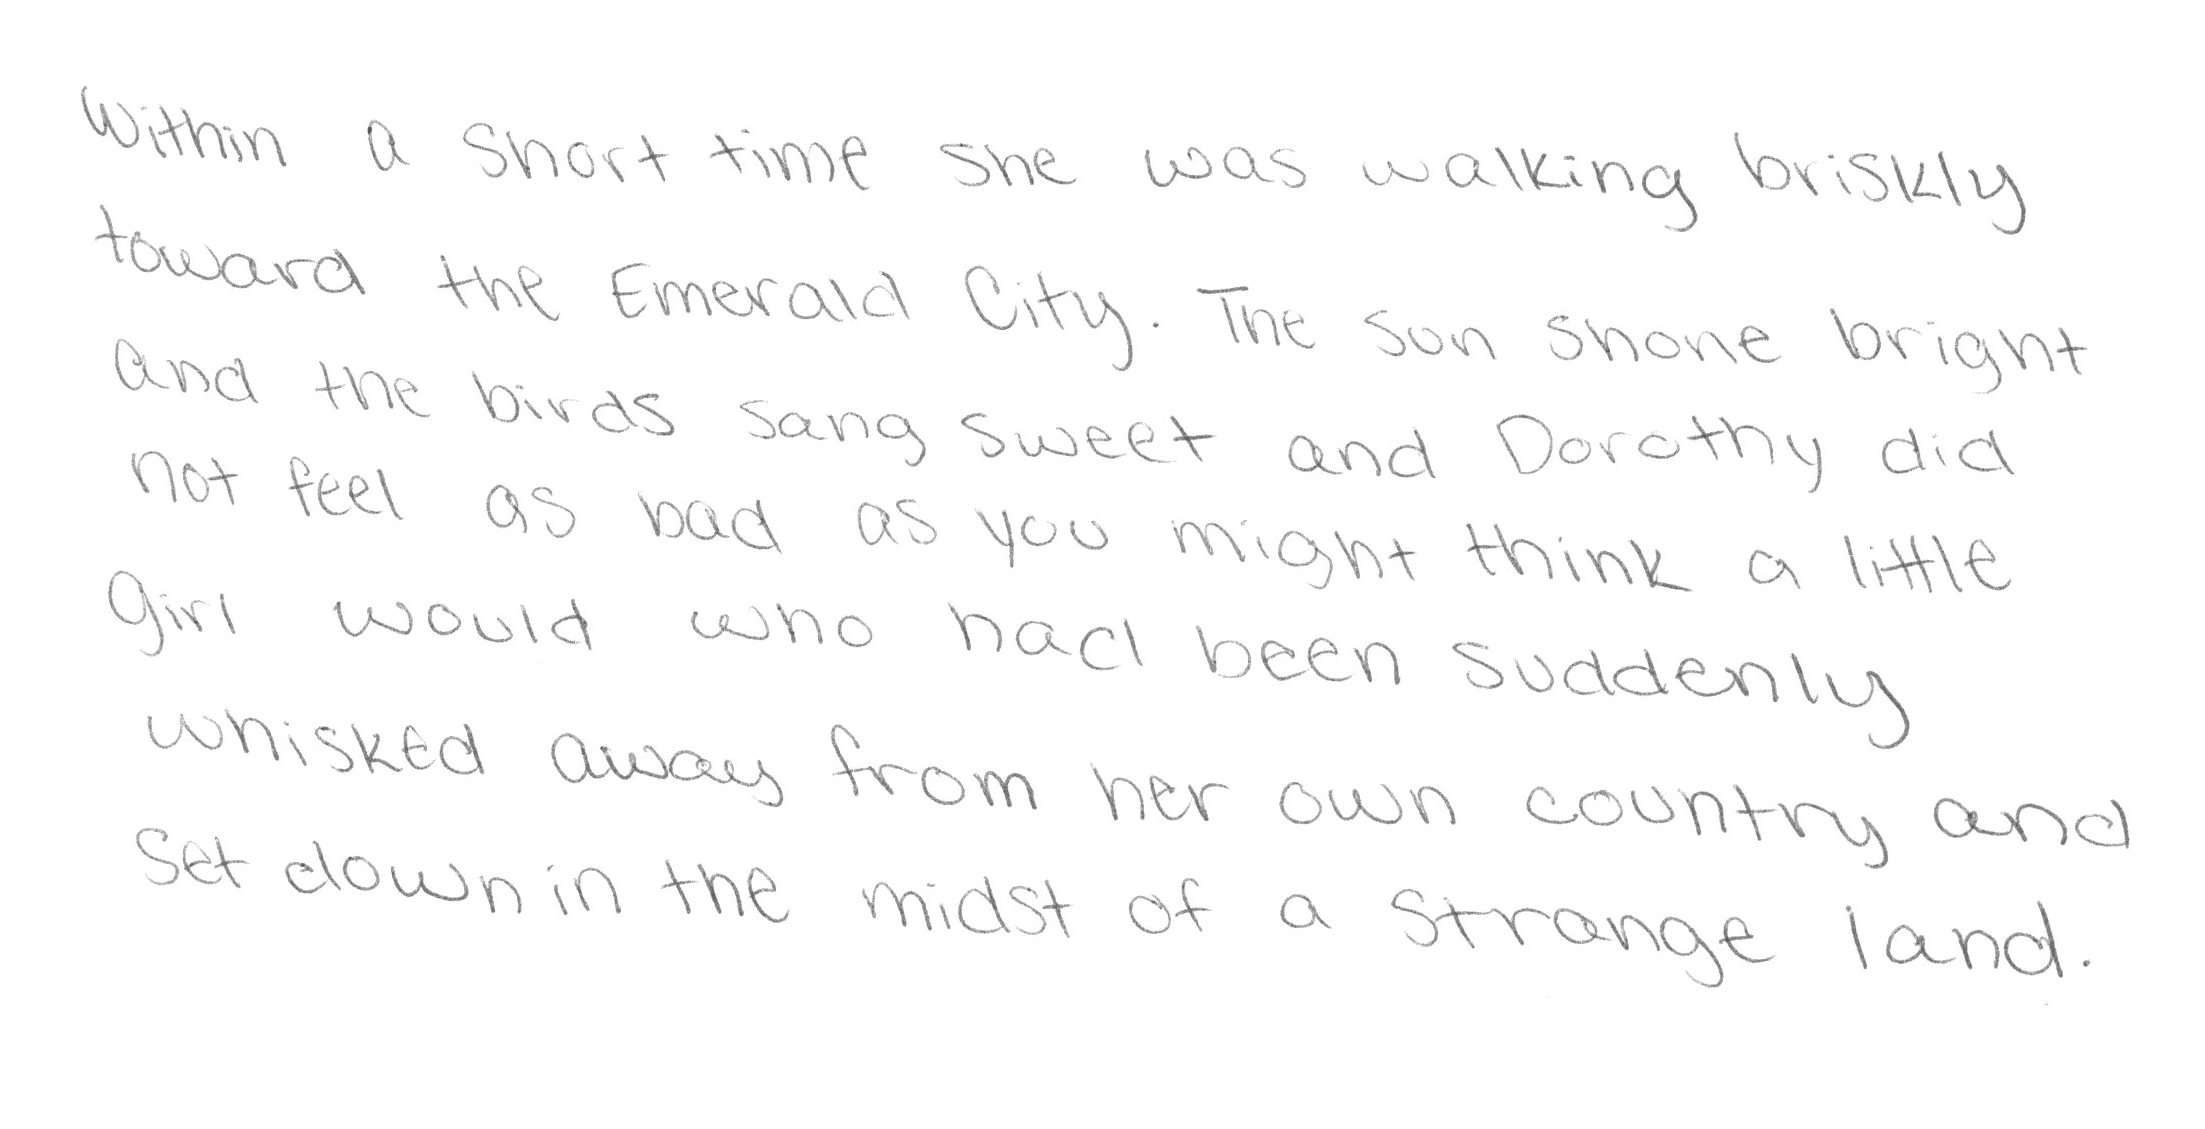 Within a short time she was walking briskly
toward the Emerald City. The sun shone bright
and the birds sang sweet and Dorothy did
not feel as bad as you might think a little
girl would who had been suddenly
whisked away from her own country and
set down in the midst of a strange land.